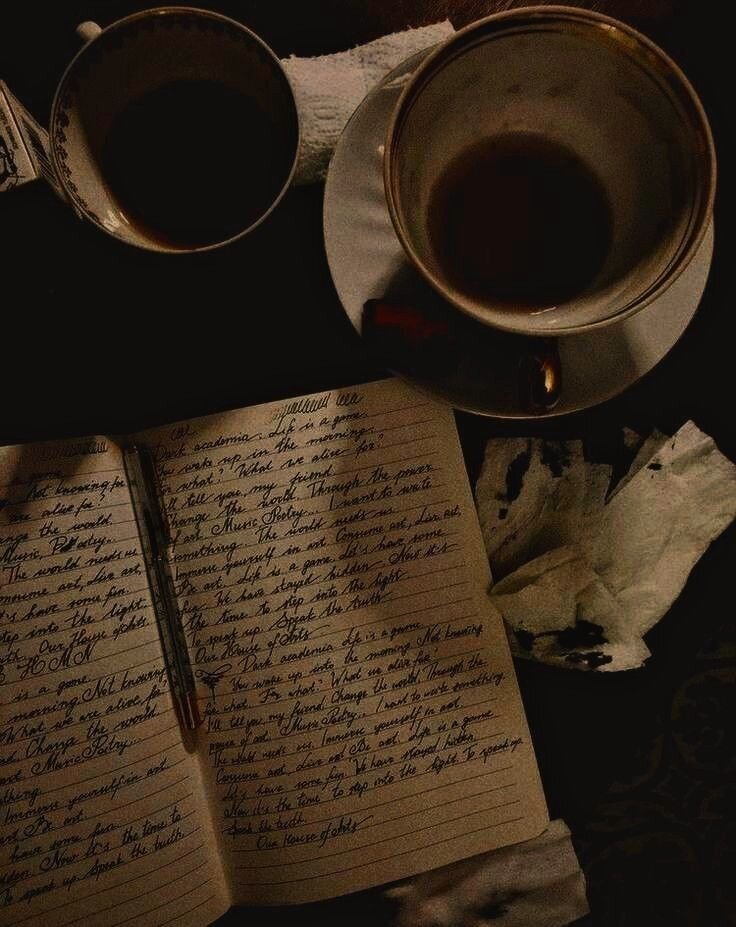 Not knowing for
are alive for?
nge the world.
Music, Poetry..
The world needs us
onsume art, Live art,
t's have some fun.
tep into the light.
th. Our House of Arts
HMN
is a game
morning. Not knowing
What we are alive for.
nd. Change the world
art. Music Poetry...
thing
Immerse yourself in art
art Be art.
have some fun.
dden. Now it's the time to
To speak up. Speak the truth
Dark academia. Life is a game.
You wake up in the morning.
for what? What we alive for?
I'll tell you, my friend
Change the world. Through the power
of art. Music Poetry... I want to write
something. The world needs us
Immerse yourself in art Consume art, Live art,
Be art. Life is a game Let's have some
fun. We have stayed hidden Now it's
the time to step into the light
To speak up Speak the truth
Our House of Arts
Dark academia Life is a game
You wake up into the morning Not knowing
for what. For what? What we alive for?
I'll tell you, my friend. Change the world. Through the
power of art. Music Poetry... I want to write something
The world needs us. Immerse yourself in art
Consume art, Live art Be art. Life is a game
Let's have some fun. We have stayed hidden
Now it's the time to step into the light. To speak up
Speak the truth.
Our House of Arts